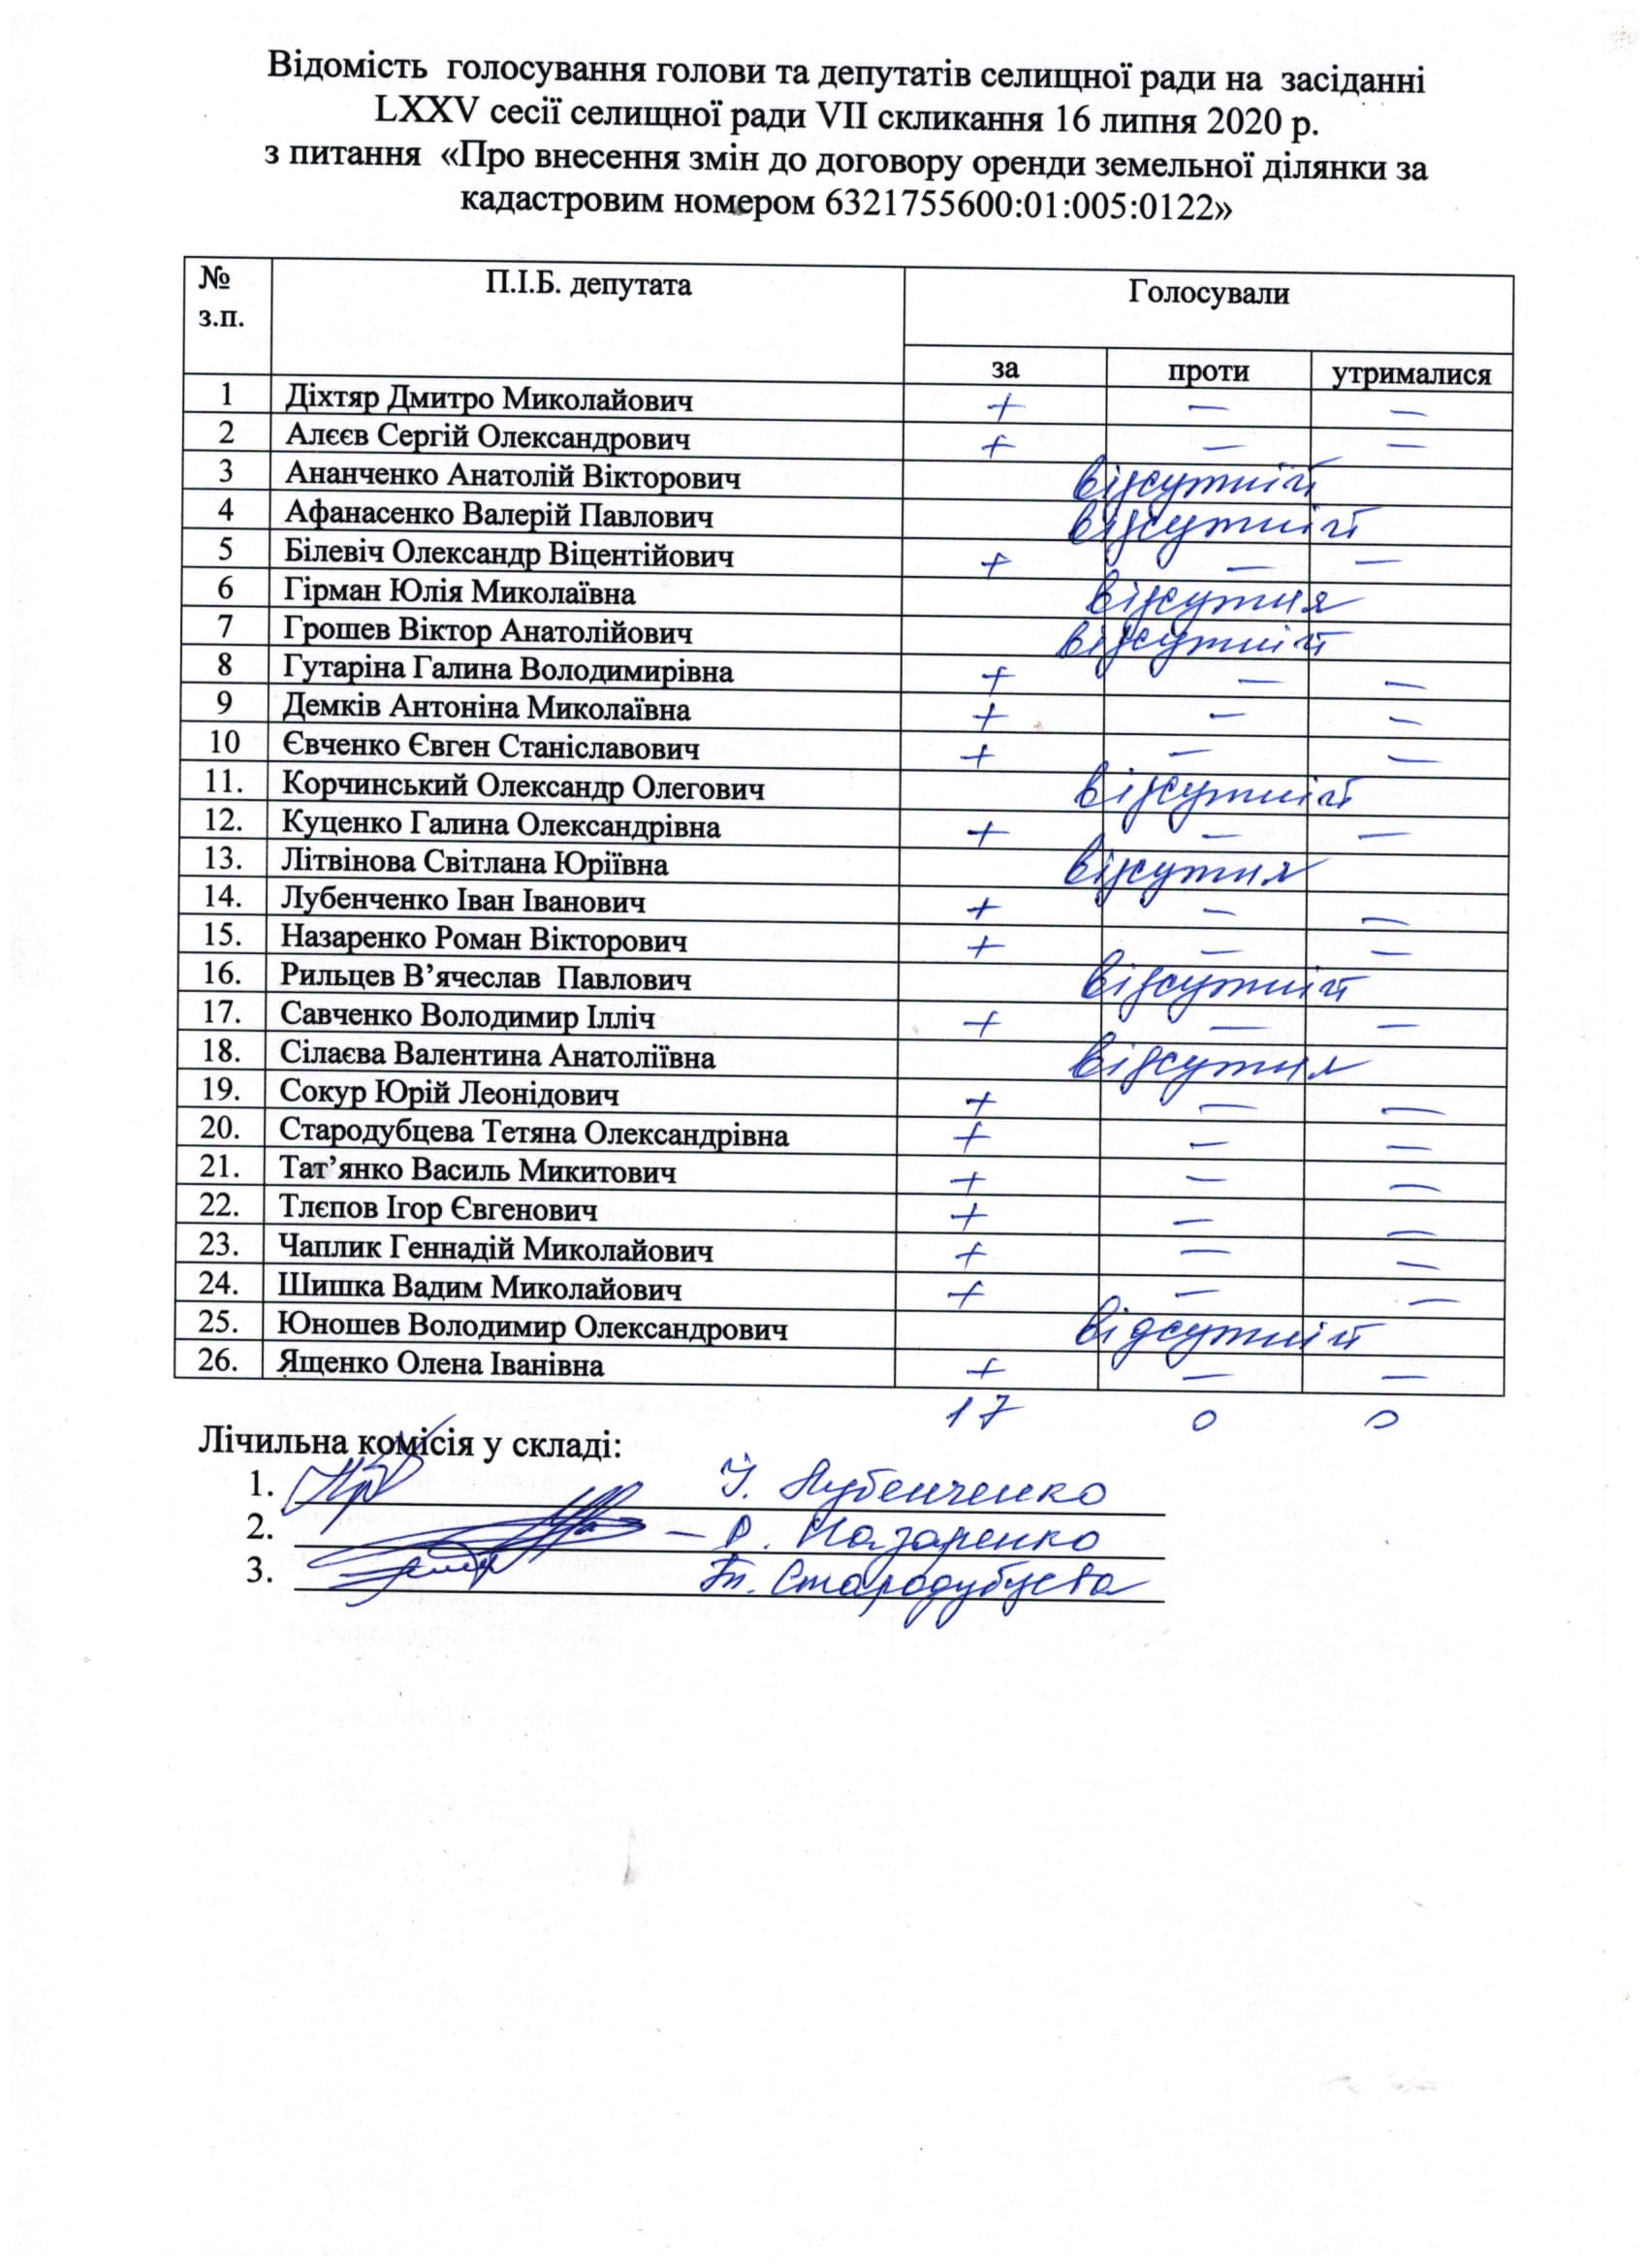 Відомість голосування голови та депутатів селищної ради на засіданні
LXXV сесії селищної ради VII скликання 16 липня 2020 р.
з питання «Про внесення змін до договору оренди земельної ділянки за
кадастровим номером 6321755600:01:005:0122»
№ з.п. П.І.Б. депутата Голосували
за проти утрималися
1 Діхтяр Дмитро Миколайович + — —
2 Алєєв Сергій Олександрович + — —
3 Ананченко Анатолій Вікторович відсутній
4 Афанасенко Валерій Павлович відсутній
5 Білевіч Олександр Віцентійович + — —
6 Гірман Юлія Миколаївна відсутня
7 Грошев Віктор Анатолійович відсутній
8 Гутаріна Галина Володимирівна + — —
9 Демків Антоніна Миколаївна + — —
10 Євченко Євген Станіславович + — —
11. Корчинський Олександр Олегович відсутній
12. Куценко Галина Олександрівна + — —
13. Літвінова Світлана Юріївна відсутня
14. Лубенченко Іван Іванович + — —
15. Назаренко Роман Вікторович + — —
16. Рильцев В’ячеслав Павлович відсутній
17. Савченко Володимир Ілліч + — —
18. Сілаєва Валентина Анатоліївна відсутня
19. Сокур Юрій Леонідович + — —
20. Стародубцева Тетяна Олександрівна + — —
21. Тат’янко Василь Микитович + — —
22. Тлєпов Ігор Євгенович + — —
23. Чаплик Геннадій Миколайович + — —
24. Шишка Вадим Миколайович + — —
25. Юношев Володимир Олександрович відсутній
26. Ященко Олена Іванівна + — —
17 0 0
Лічильна комісія у складі:
1. І. Лубенченко
2. – Р. Назаренко
3. Т. Стародубцева